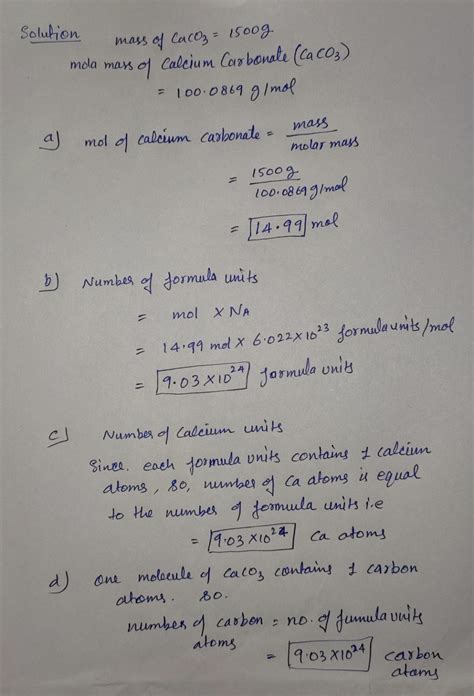 Solution mass of CaCO3 = 1500g
mola mass of Calcium Carbonate (CaCO3)
= 100.0869 g/mol
a) mol of calcium carbonate = mass
molar mass
= 1500g
100.0869 g/mol
= 14.99 mol
b) Number of formula units
= mol × NA
= 14.99 mol × 6.022×10^23 formula units/mol
= 9.03 ×10^24 formula units
c) Number of Calcium units
Since. each formula units contains 1 calcium
atoms, so, number of Ca atoms is equal
to the number of formula units i.e
= 9.03 ×10^24 Ca atoms
d) one molecule of CaCO3 contains 1 carbon
atoms. so.
number of carbon = no. of fumula units
atoms
= 9.03×10^24 carbon
atoms